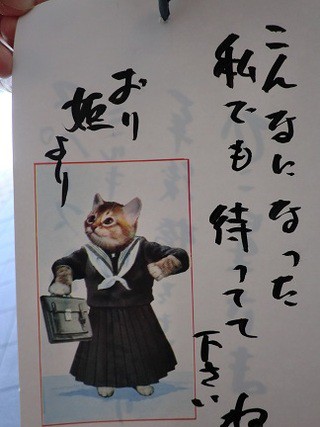 こんなになった
私でも待ってて
下さいね
おり
姫
より